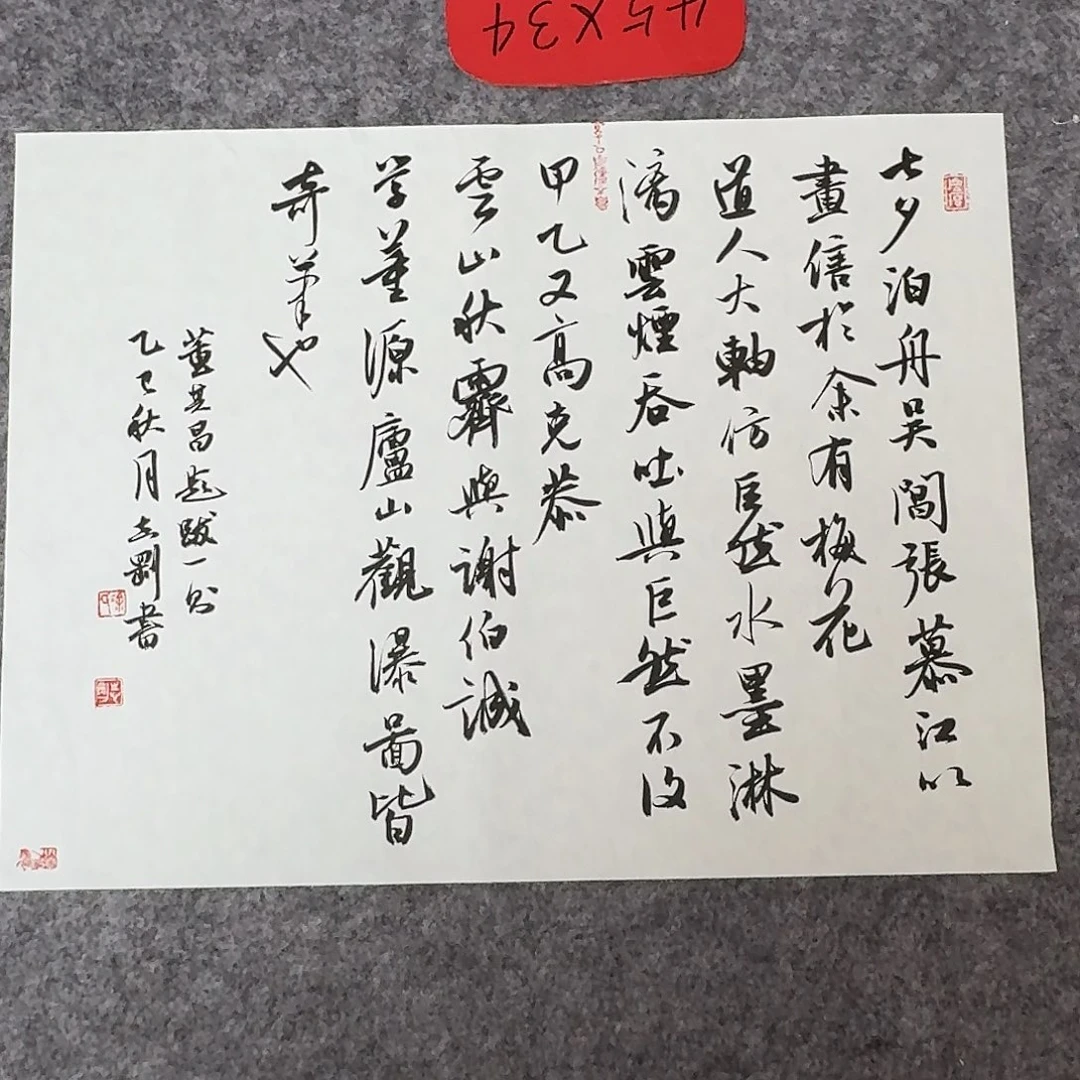 45X34
七夕泊舟吴閶張慕江以
畫售於余有梅花
道人大軸仿巨然水墨淋
漓雲煙吞吐與巨然不复
甲乙又高克恭
雲山秋霽與謝伯誠
学董源廬山觀瀑啚皆
奇笔也
董其昌題跋一则
乙巳秋月志剛書